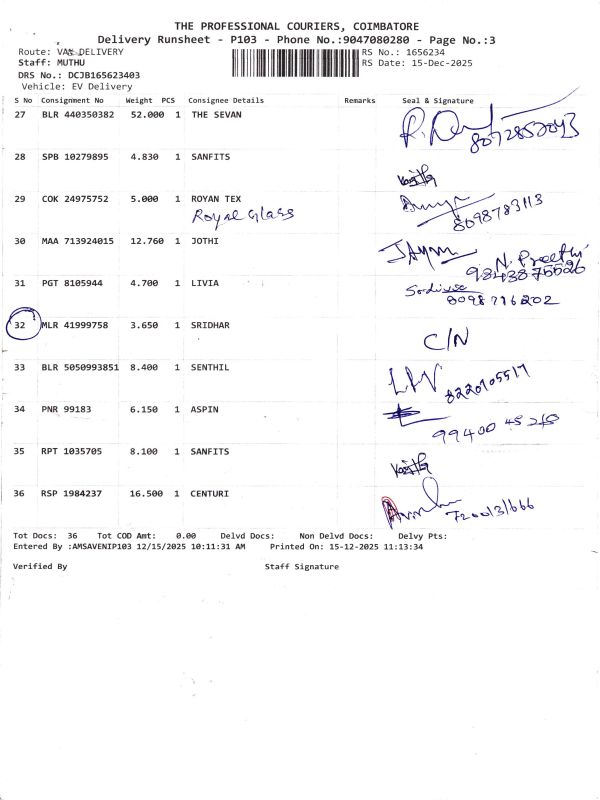 THE PROFESSIONAL COURIERS, COIMBATORE
Delivery Runsheet - P103 - Phone No.:9047080280 - Page No.:3
Route: VAN DELIVERY RS No.: 1656234
Staff: MUTHU RS Date: 15-Dec-2025
DRS No.: DCJB165623403
Vehicle: EV Delivery
S No Consignment No Weight PCS Consignee Details Remarks Seal & Signature
27 BLR 440350382 52.000 1 THE SEVAN
28 SPB 10279895 4.830 1 SANFITS
29 COK 24975752 5.000 1 ROYAN TEX
Royal Glass 8098783113
30 MAA 713924015 12.760 1 JOTHI
N. Preethi
31 PGT 8105944 4.700 1 LIVIA
8098716202
32 MLR 41999758 3.650 1 SRIDHAR
C/N
33 BLR 5050993851 8.400 1 SENTHIL
8220705517
34 PNR 99183 6.150 1 ASPIN
99400 45210
35 RPT 1035705 8.100 1 SANFITS
36 RSP 1984237 16.500 1 CENTURI
7200131666
Tot Docs: 36 Tot COD Amt: 0.00 Delvd Docs: Non Delvd Docs: Delvy Pts:
Entered By :AMSAVENIP103 12/15/2025 10:11:31 AM Printed On: 15-12-2025 11:13:34
Verified By Staff Signature